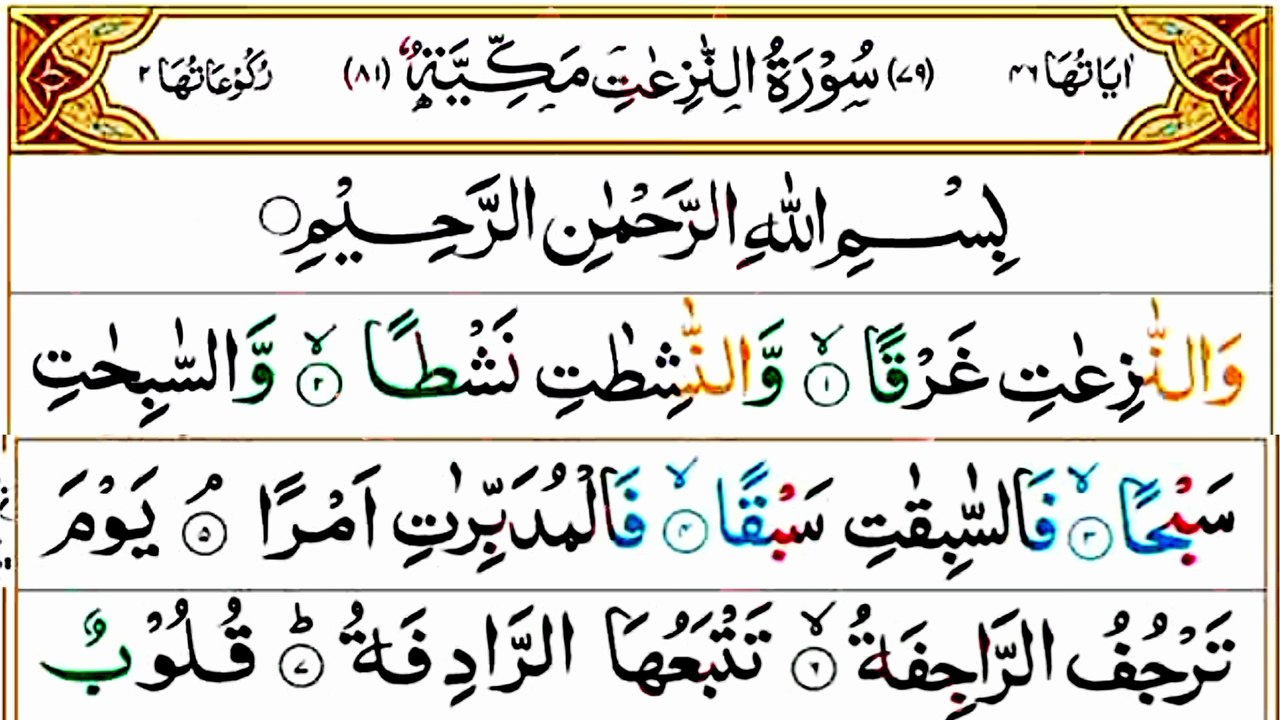 اٰيَاتُهَا ٤٦ (٧٩) سُوْرَةُ النّٰزِعٰتِ مَكِّيَّةٌ (٨١) رُكُوْعَاتُهَا ٢
بِسْمِ اللّٰهِ الرَّحْمٰنِ الرَّحِيْمِ
وَالنّٰزِعٰتِ غَرْقًا ۙ﴿١﴾ وَّالنّٰشِطٰتِ نَشْطًا ۙ﴿٢﴾ وَّالسّٰبِحٰتِ
سَبْحًا ۙ﴿٣﴾ فَالسّٰبِقٰتِ سَبْقًا ۙ﴿٤﴾ فَالْمُدَبِّرٰتِ اَمْرًا ۘ﴿٥﴾ يَوْمَ
تَرْجُفُ الرَّاجِفَةُ ۙ﴿٦﴾ تَتْبَعُهَا الرَّادِفَةُ ؕ﴿٧﴾ قُلُوْبٌ